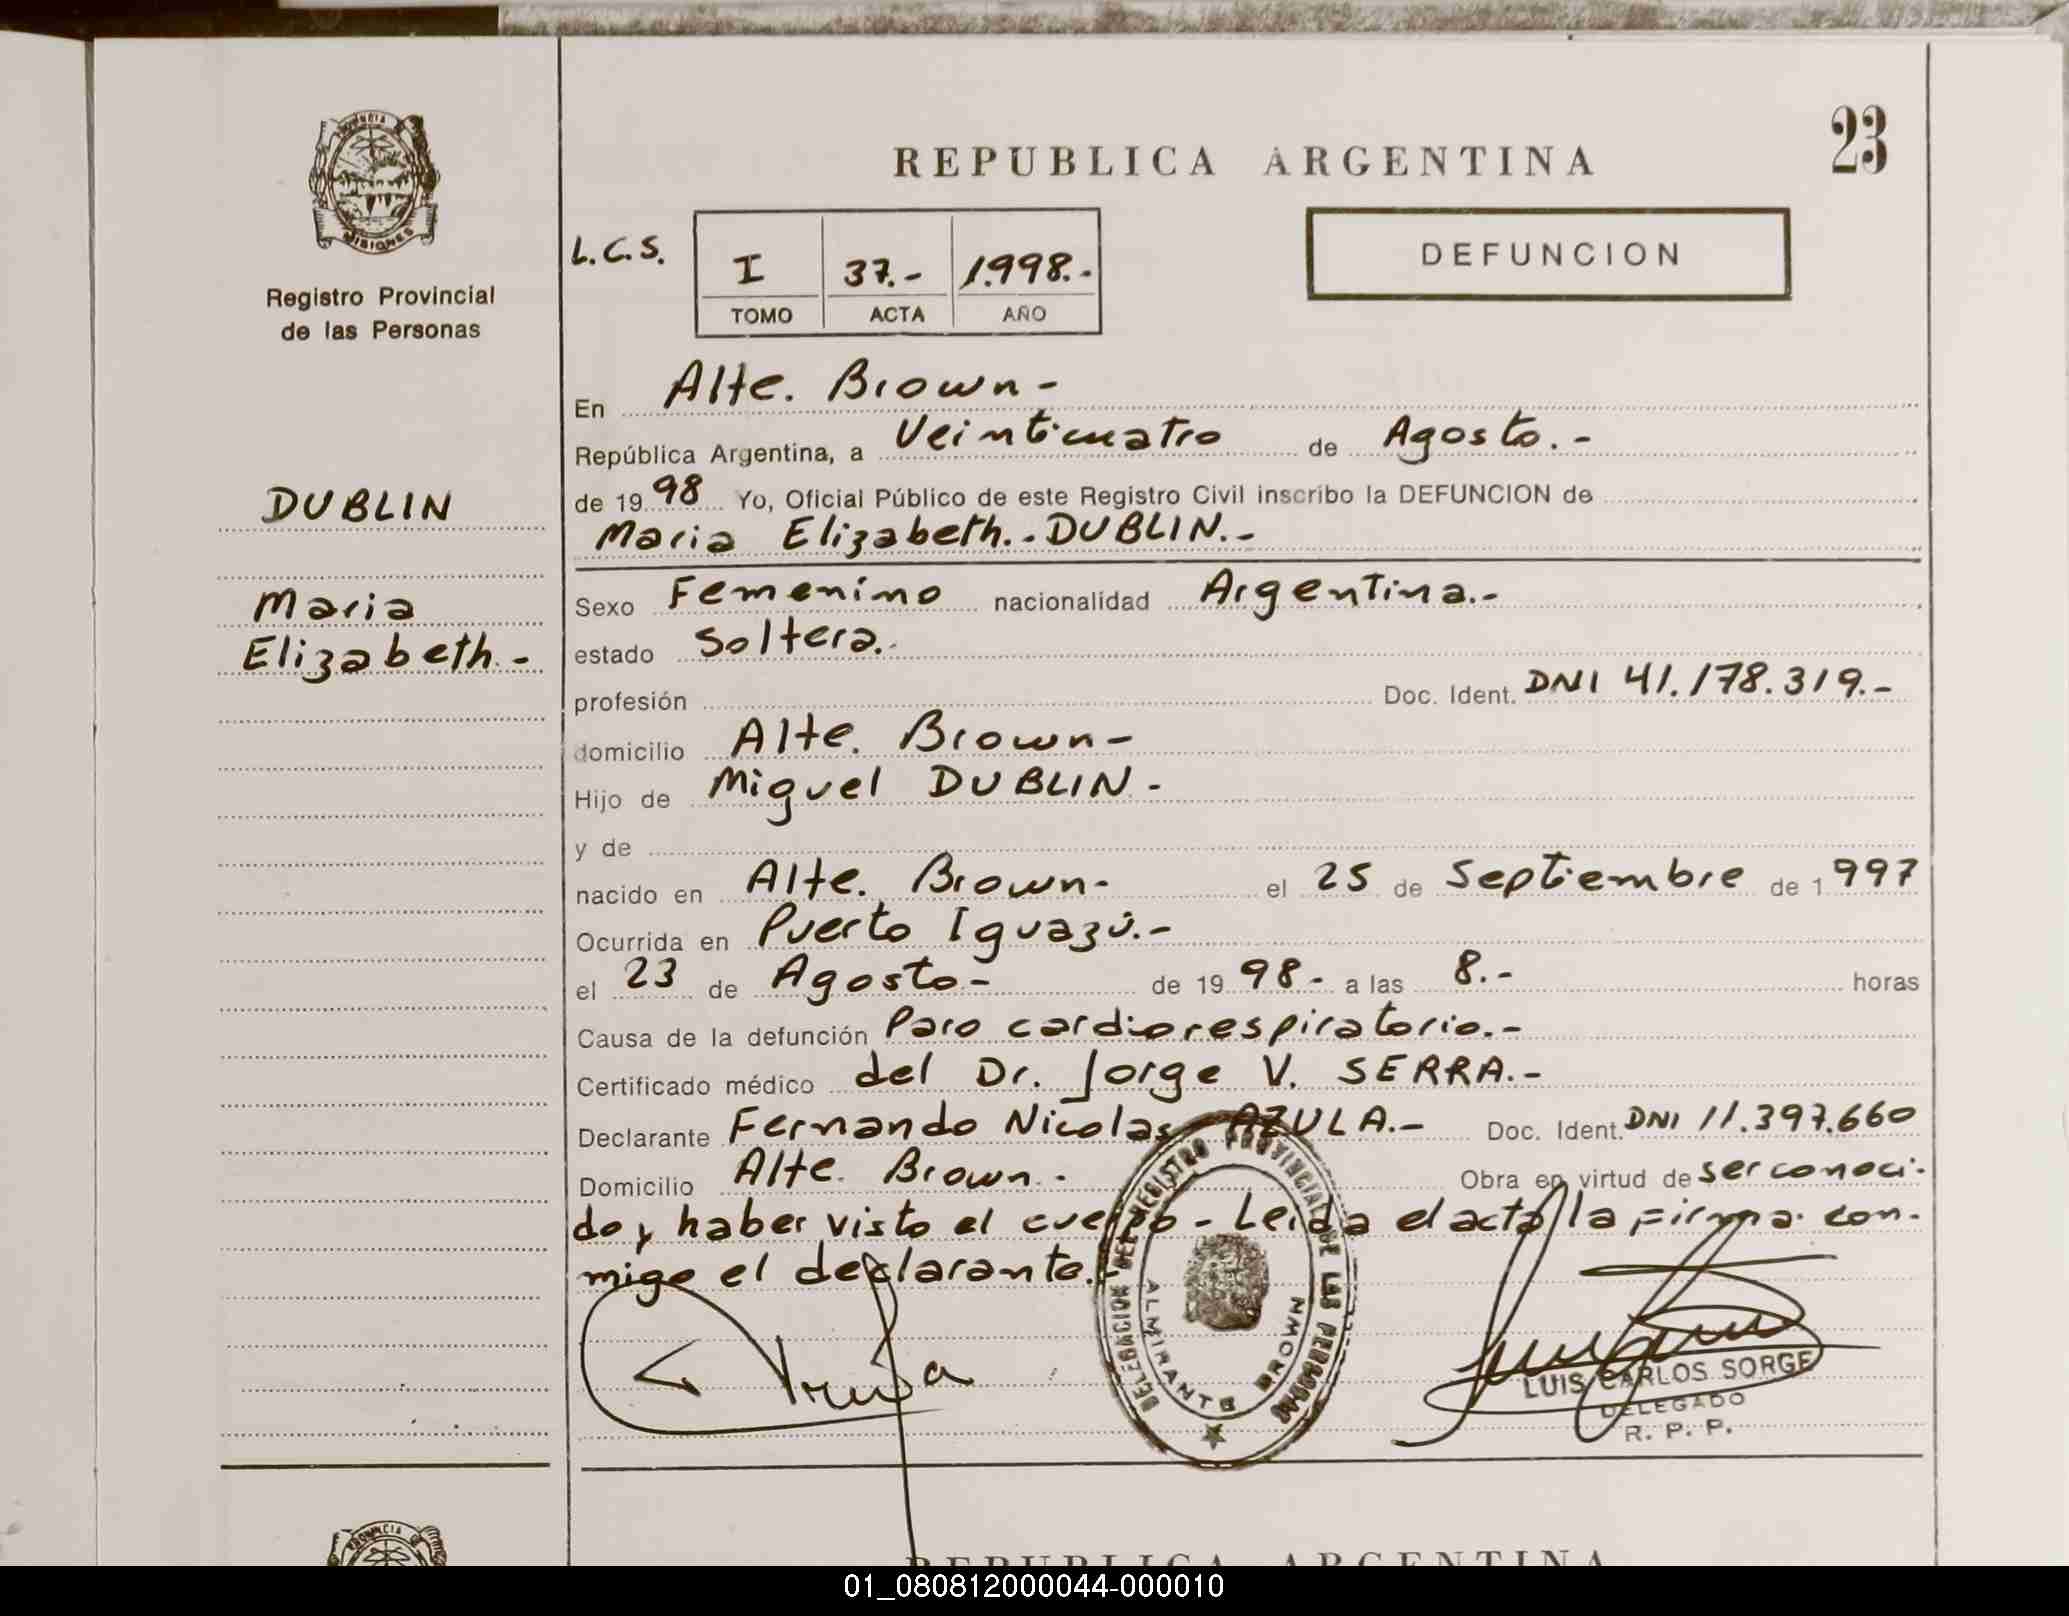 PROVINCIA DE
MISIONES
Registro Provincial
de las Personas
DUBLIN
Maria
Elizabeth.-
REPUBLICA ARGENTINA
23
L.C.S.
I 37.- 1.998.-
TOMO ACTA AÑO
DEFUNCION
En Alte. Brown-
República Argentina, a Veinticuatro de Agosto.-
de 19 98 Yo, Oficial Público de este Registro Civil inscribo la DEFUNCION de
Maria Elizabeth.-DUBLIN.-
Sexo Femenino nacionalidad Argentina.-
estado Soltera.-
profesión Doc. Ident. DNI 41.178.319.-
domicilio Alte. Brown-
Hijo de Miguel DUBLIN.-
y de
nacido en Alte. Brown- el 25 de Septiembre de 1997
Ocurrida en Puerto Iguazú.-
el 23 de Agosto- de 19 98- a las 8.- horas
Causa de la defunción Paro cardiorespiratorio.-
Certificado médico del Dr. Jorge V. SERRA.-
Declarante Fernando Nicolas AZULA.- Doc. Ident. DNI 11.397.660
Domicilio Alte. Brown.- Obra en virtud de ser conoci-
do y haber visto el cuerpo - Leida el acta, la firma con-
migo el declarante.-
DELEGACION DEL REGISTRO PROVINCIAL DE LAS PERSONAS
ALMIRANTE BROWN
LUIS CARLOS SORGE
DELEGADO
R. P. P.
PROVINCIA DE
REPUBLICA ARGENTINA
01_080812000044-000010